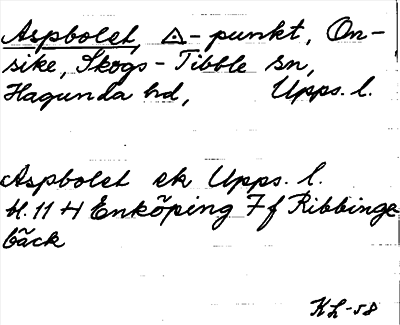 Aspbolet, △-punkt, On-
sike, Skogs-Tibble sn,
Hagunda hd, Upps. l.
Aspbolet ek Upps. l.
bl. 11 H Enköping 7f Ribbinge-
bäck
KL-58